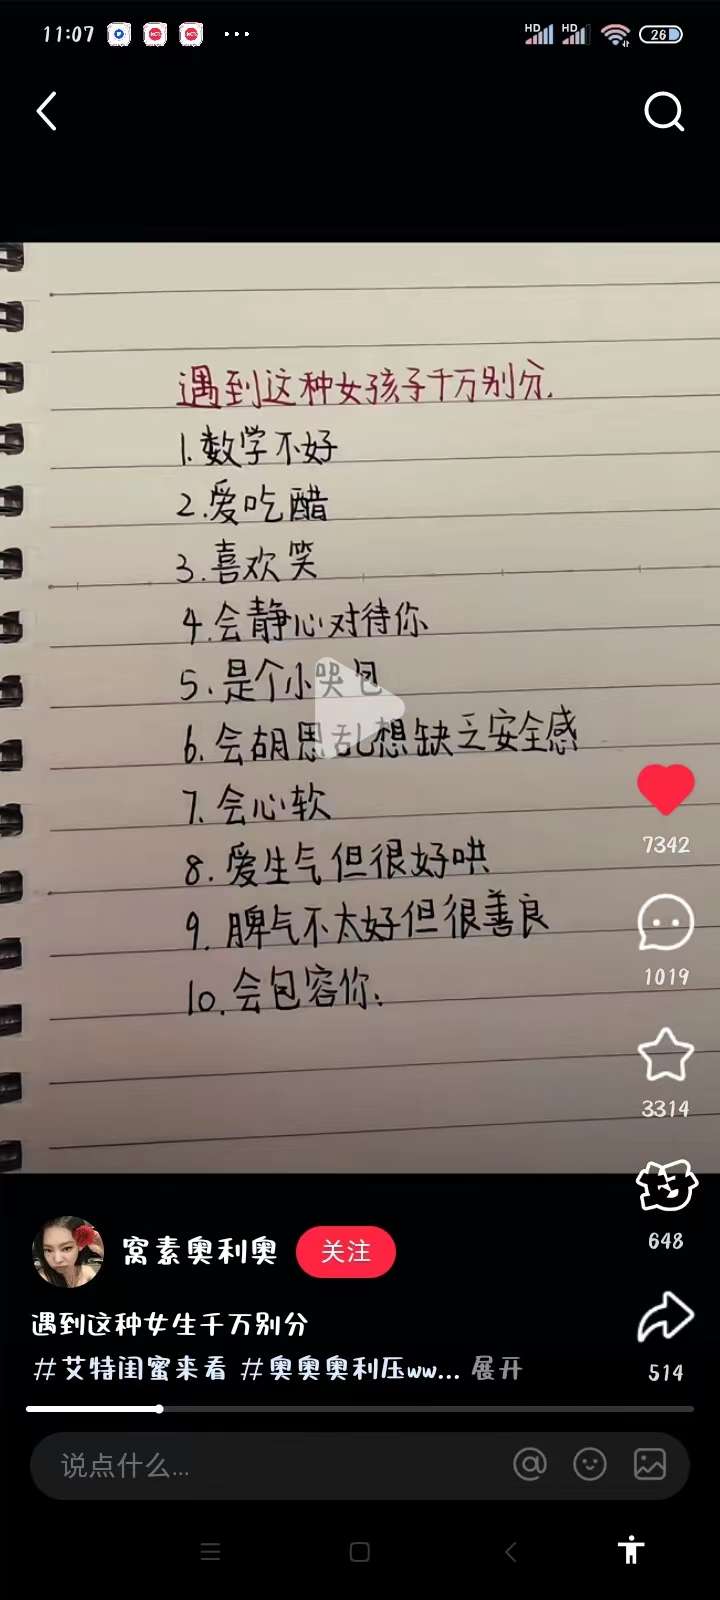 11:07
HD
HD
26
遇到这种女孩子千万别分.
1.数学不好
2.爱吃醋
3.喜欢笑
4.会静心对待你
5.是个小哭包
6.会胡思乱想缺乏安全感
7.会心软
8.爱生气但很好哄
9.脾气不太好但很善良
10.会包容你.
7342
1019
3314
好
648
514
窝素奥利奥
关注
遇到这种女生千万别分
#艾特闺蜜来看 #奥奥奥利压ww... 展开
说点什么...